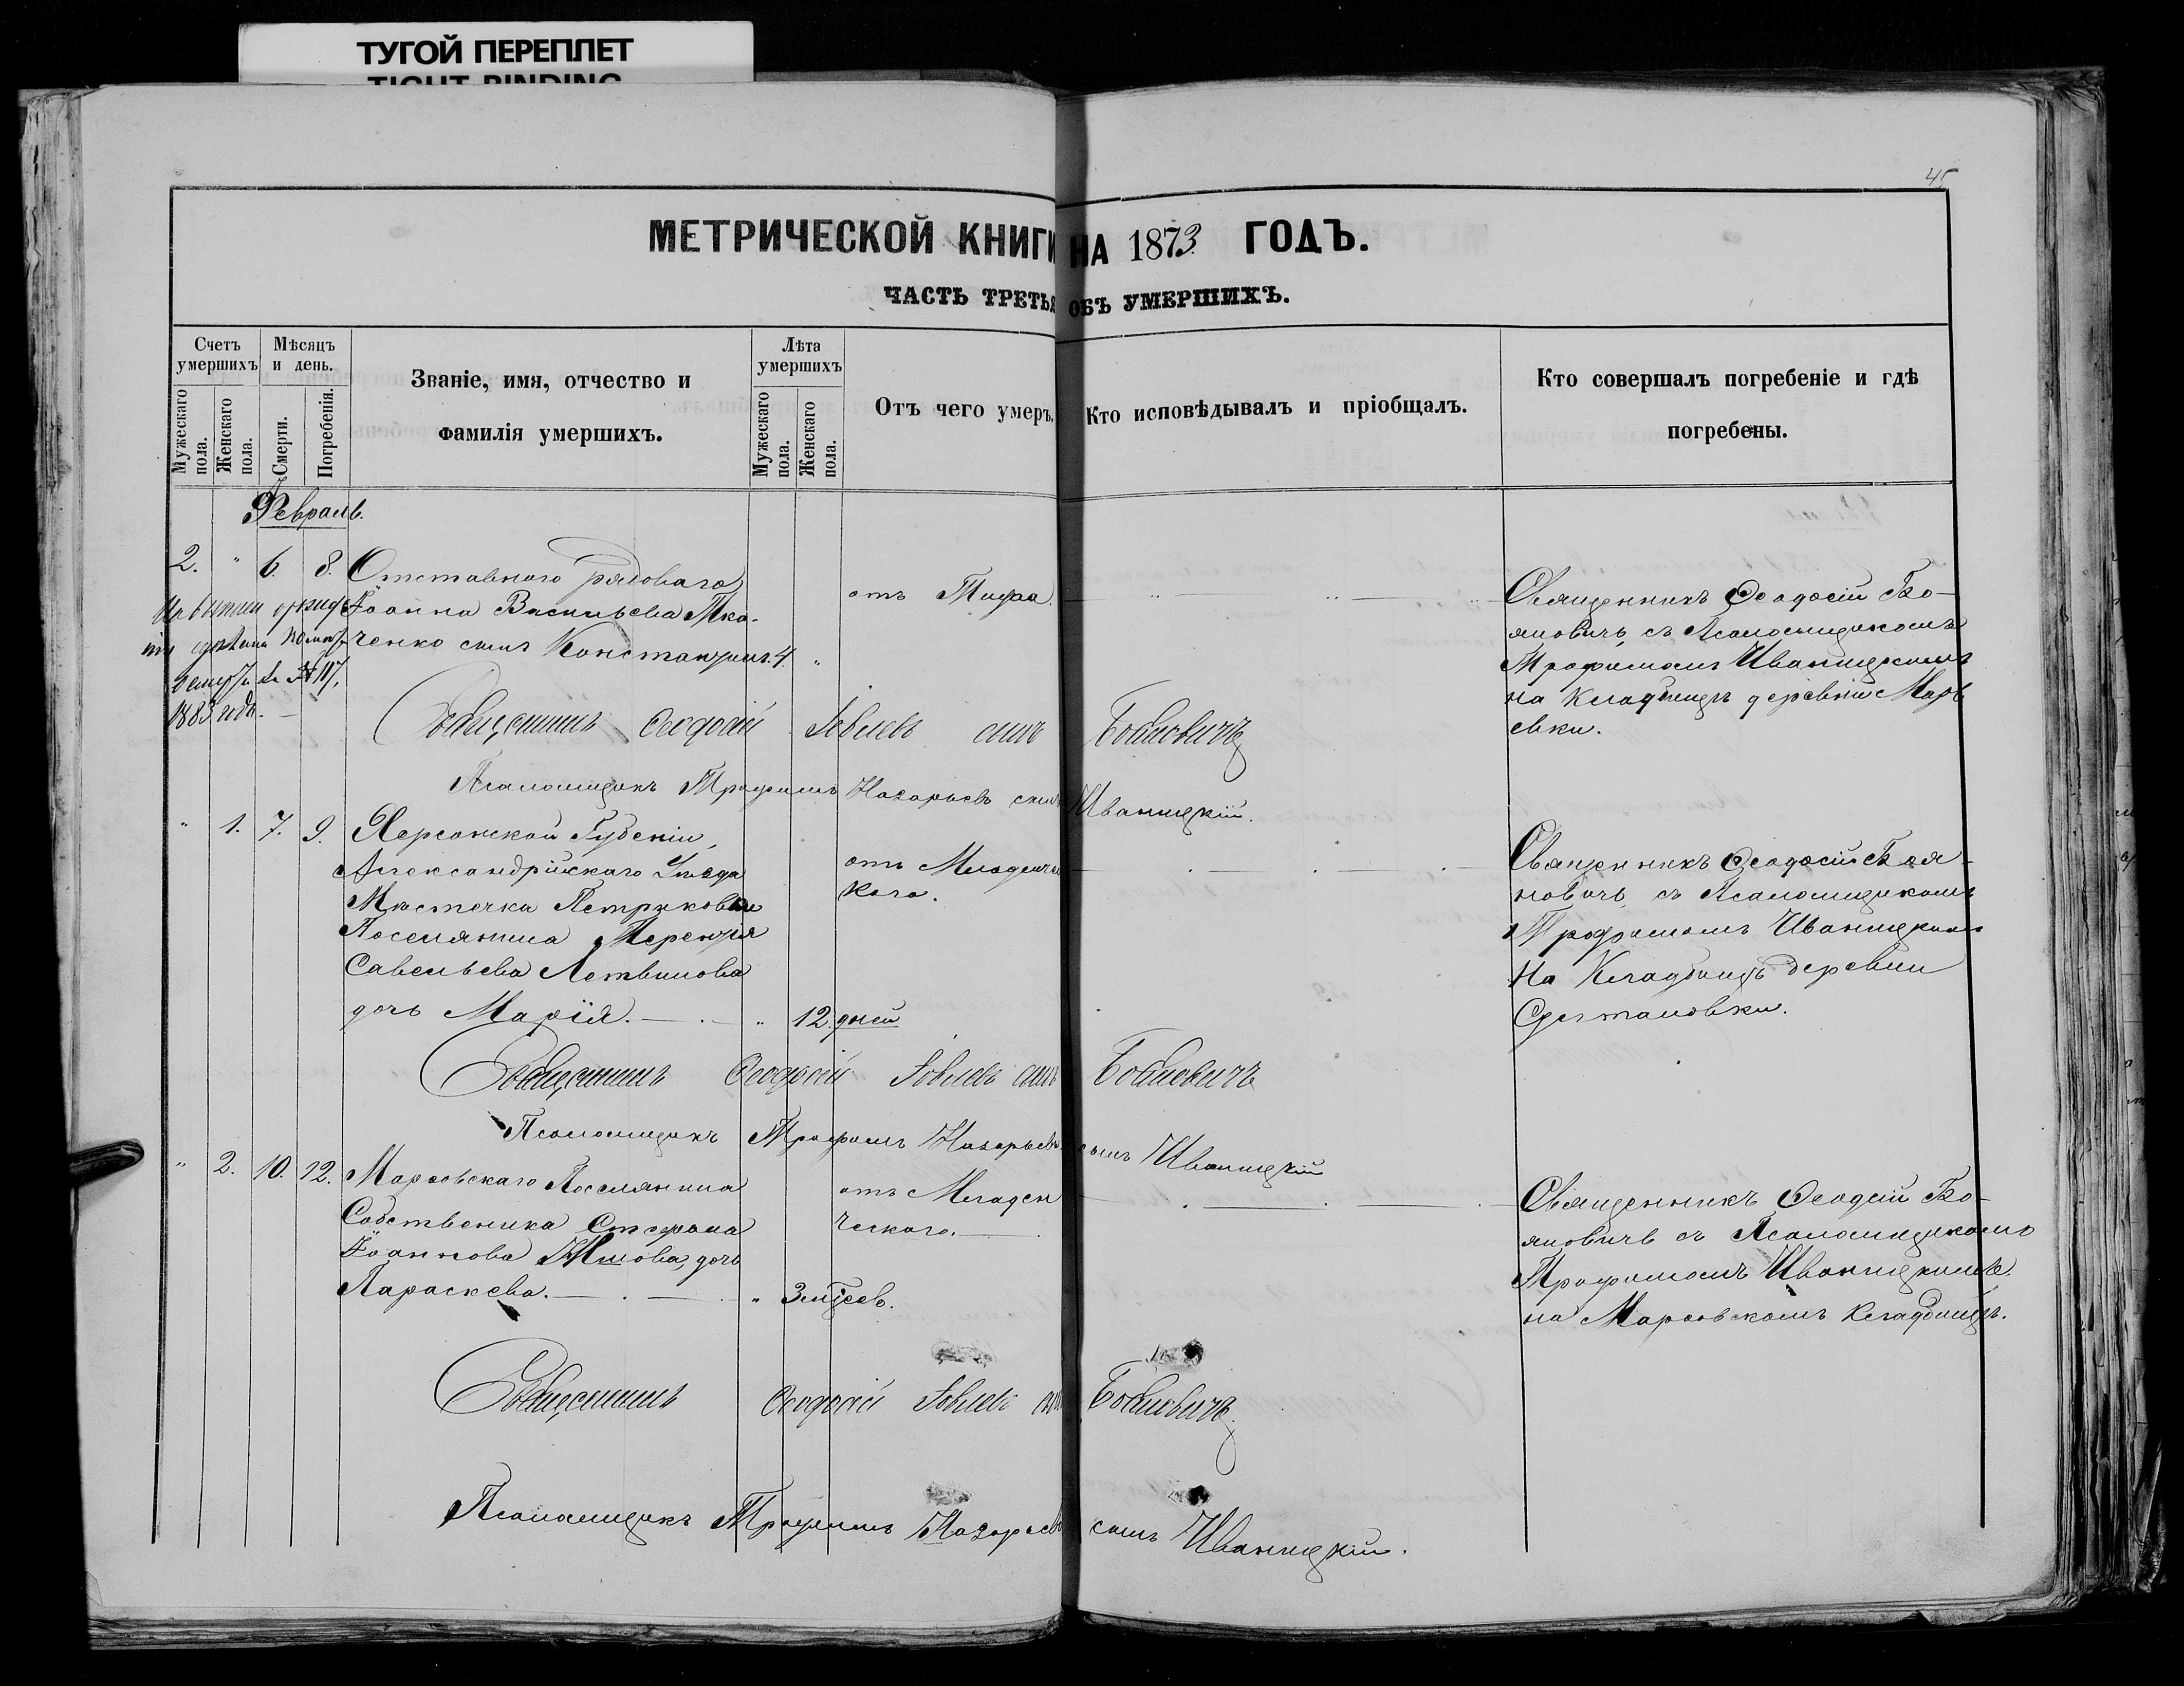 ТУГОЙ ПЕРЕПЛЕТ
TIGHT BINDING
45
МЕТРИЧЕСКОЙ КНИГИ НА 1873 ГОДЪ.
ЧАСТЬ ТРЕТЬЯ ОБЪ УМЕРШИХЪ.
Счетъ умершихъ
Мужескаго пола.
Женскаго пола.
Мѣсяцъ и день.
Смерти.
Погребенія.
Званіе, имя, отчество и
фамилія умершихъ.
Лѣта умершихъ
Мужескаго пола.
Женскаго пола.
Отъ чего умеръ.
Кто исповѣдывалъ и пріобщалъ.
Кто совершалъ погребеніе и гдѣ
погребены.
Февраль.
2. " 6. 8. Отставнаго рядоваго
Іоанна Васильева Тка-
ченко сынъ Константинъ. 4. "
отъ Тифа.
Священникъ Ѳеодосій Бо-
яновичъ, съ Псаломщикомъ
Трофимомъ Иваницкимъ
на кладбищѣ деревни Марь
евки.
№ 117,
1883 года.
Священникъ Ѳеодосій Іовлевъ сынъ Бояновичъ
Псаломщикъ Трофимъ Назарьевъ сынъ Иваницкій.
" 1. 7. 9. Херсонской Губерніи,
Александрійскаго Уѣзда
Мѣстечка Петриковки
Поселянина Терентія
Савельева Летвинова
дочь Марія. " 12. дней
отъ Младенче
каго.
Священникъ Ѳеодосій Боя-
новичъ, съ Псаломщикомъ
Трофимомъ Иваницкимъ
На Кладбищѣ деревни
Священникъ Ѳеодосій Іовлевъ сынъ Бояновичъ
Псаломщикъ Трофимъ Назарьевъ сынъ Иваницкій
" 2. 10. 12. Марьевскаго Поселянина
Собственика Стефана
Іоаннова дочь
Параскева. " 3 мѣсев.
отъ Младен
ческаго.
Священникъ Ѳеодосій Бо-
яновичъ съ Псаломщикомъ
Трофимомъ Иваницкимъ.
на Марьевскомъ кладбищѣ.
Священникъ Ѳеодосій Іовлевъ сынъ Бояновичъ.
Псаломщикъ Трофимъ Назарьевъ сынъ Иваницкій.